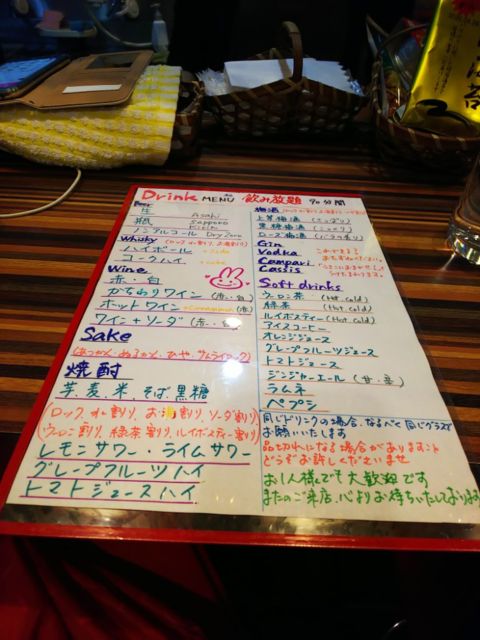 Drink MENU 飲み放題 90分間
Beer
生 Asahi
瓶 Sapporo
Kirin
ノンアルコール Dry Zero
Whisky
ハイボール
コークハイ
Wine
赤・白
かちわりワイン (赤・白)
ホットワイン (赤)
ワイン+ソーダ (赤・白)
Sake
焼酎
芋、麦、米、そば、黒糖
(ロック、水割り、お湯割り、ソーダ割り)
(ウーロン割り、緑茶割り、ルイボスティー割り)
レモンサワー・ライムサワー
グレープフルーツハイ
トマトジュースハイ
梅酒
上等梅酒 (さっぱり)
黒糖梅酒 (こってり)
ローズ梅酒 (バラの香り)
Gin
Vodka
Campari
Cassis
Soft drinks
ウーロン茶 (Hot, cold)
緑茶 (Hot cold)
ルイボスティー (Hot, cold)
アイスコーヒー
オレンジジュース
グレープフルーツジュース
トマトジュース
ジンジャーエール (甘・辛)
ラムネ
ペプシ
同じドリンクの場合、なるべく同じグラスで
お願いいたします
品切れになる場合があります
どうぞお許しくださいませ
お1人様でも大歓迎です
またのご来店、心よりお待ちいたしております